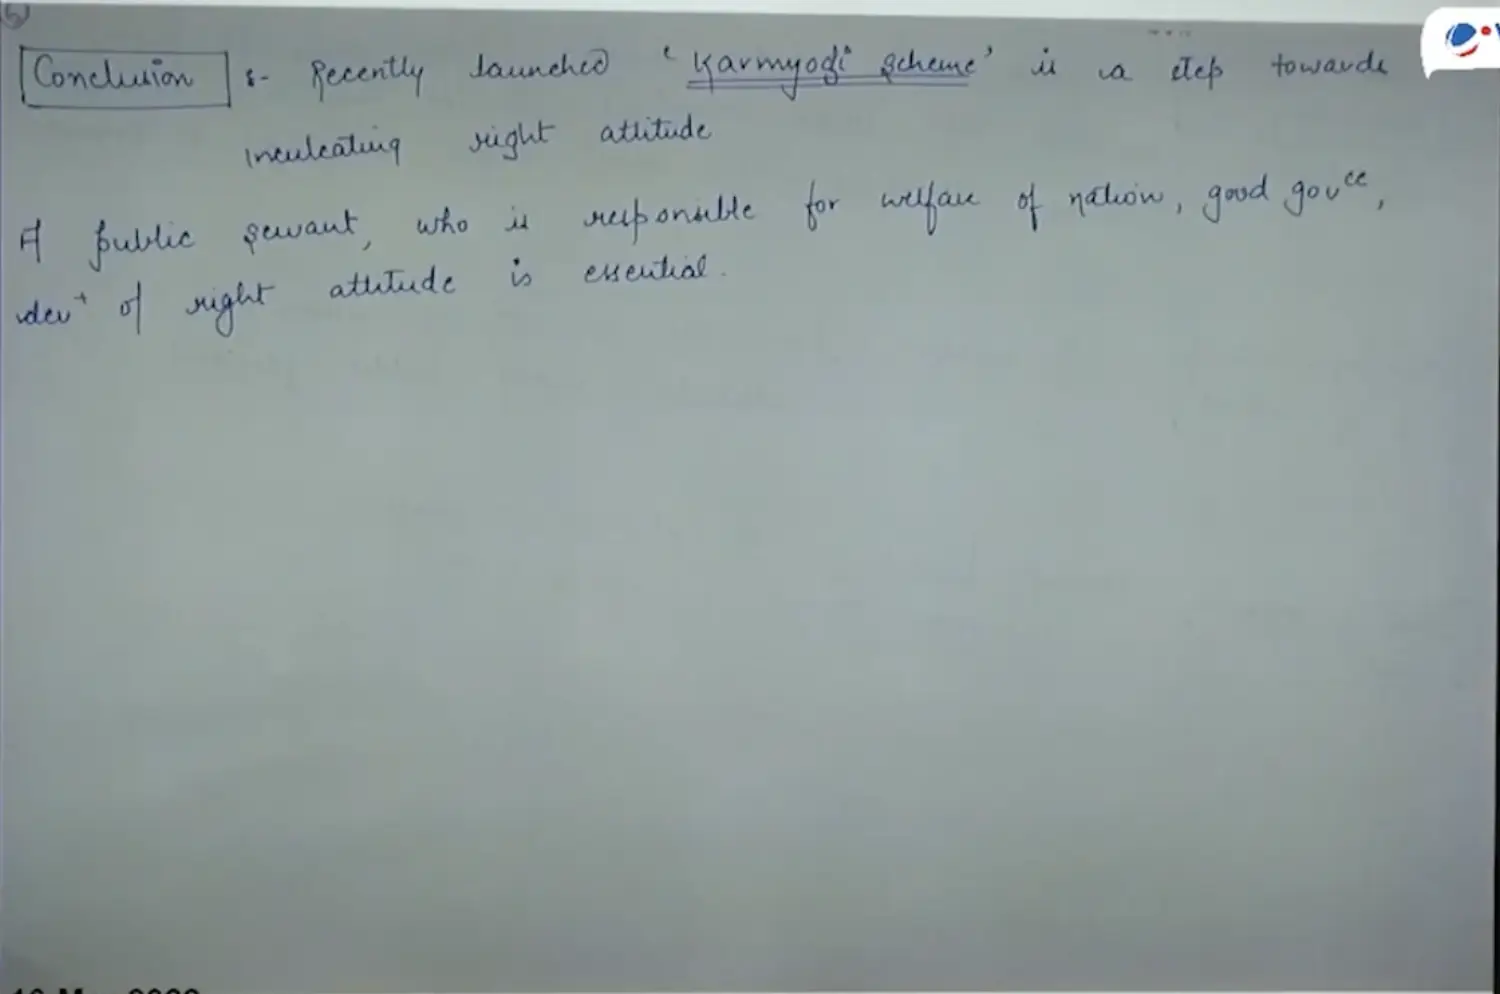 5)
Conclusion :- Recently launched 'Karmyogi Scheme' is a step towards
inculcating right attitude
A public servant, who is responsible for welfare of nation, good govce,
devt of right attitude is essential.